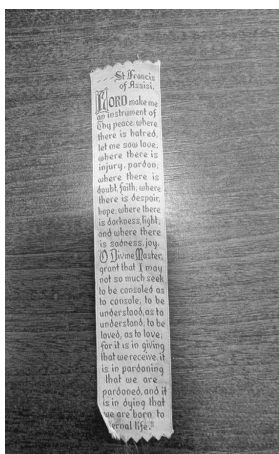 St Francis
of Assisi.
LORD make me
an instrument of
Thy peace, where
there is hatred,
let me sow love;
where there is
injury, pardon;
where there is
doubt, faith; where
there is despair,
hope; where there
is darkness, light;
and where there
is sadness, joy.
O Divine Master,
grant that I may
not so much seek
to be consoled as
to console; to be
understood, as to
understand; to be
loved, as to love;
for it is in giving
that we receive, it
is in pardoning
that we are
pardoned, and it
is in dying that
we are born to
ernal life.